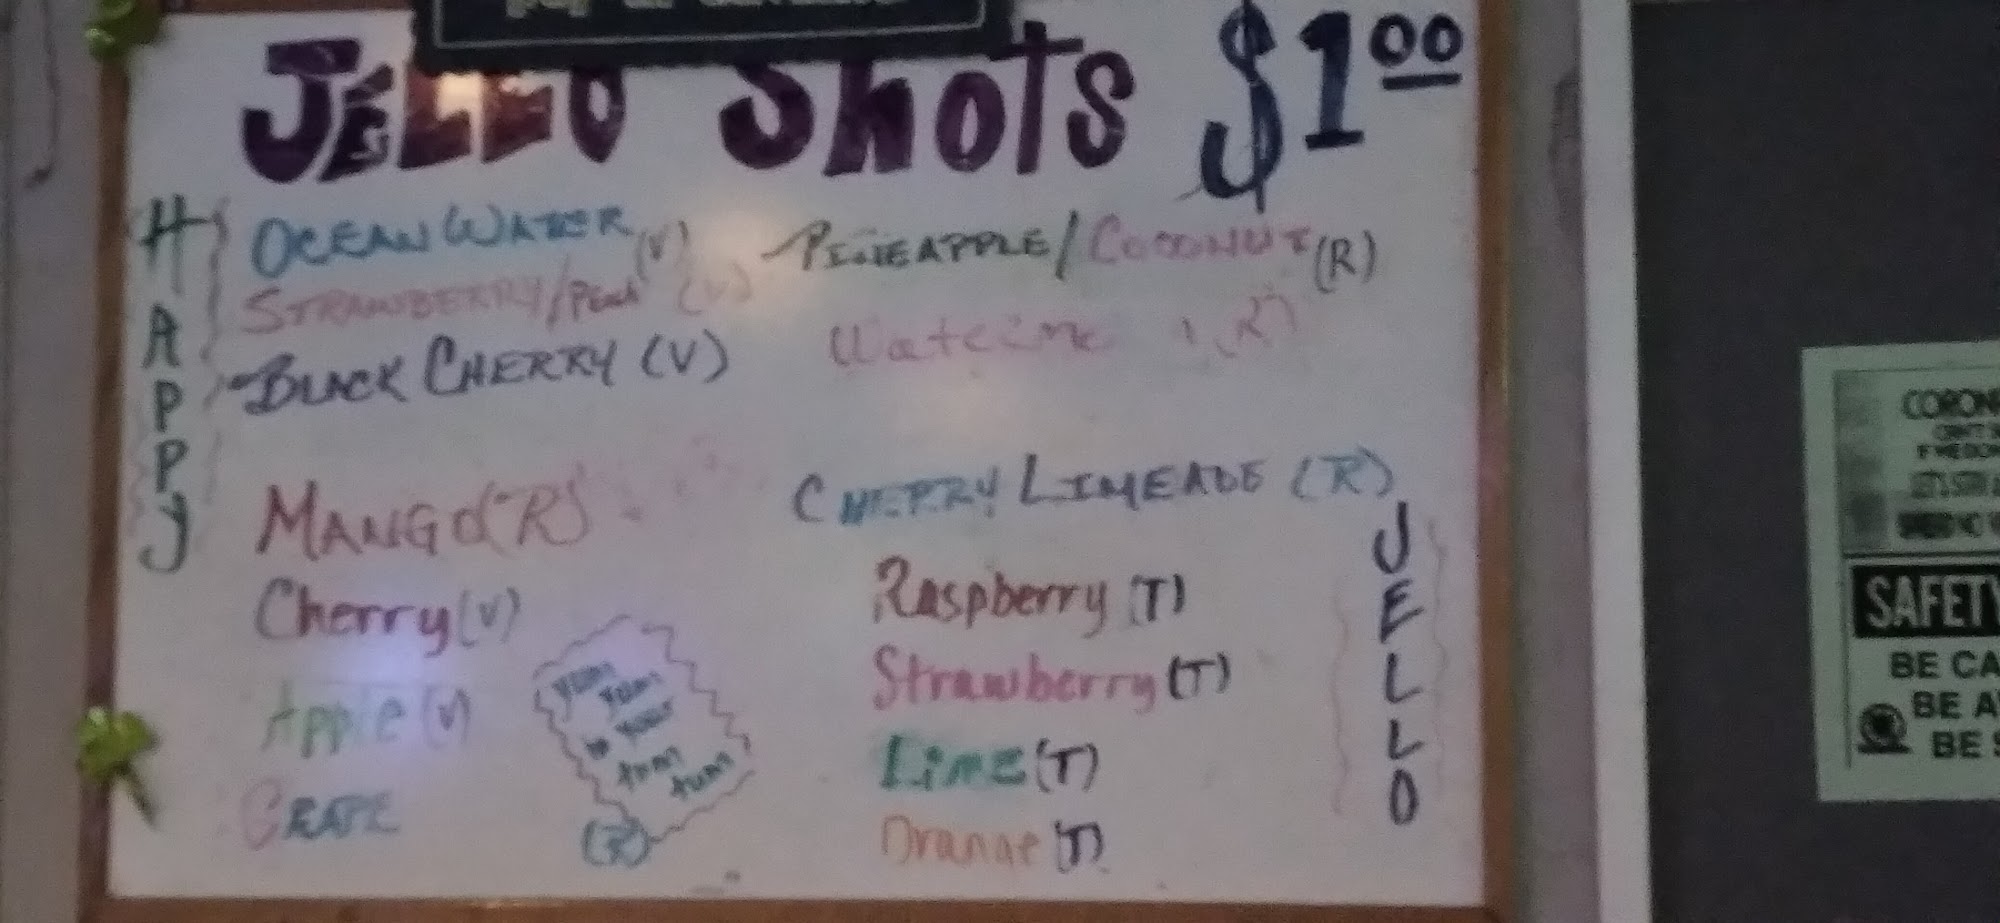 Jello Shots $1.00
HAPPY
OCEAN WATER (V)
STRAWBERRY/Peach (V)
BLACK CHERRY (V)
MANGO (R)
Cherry (V)
Apple (V)
GRAPE (R)
yum yum
in your
tum
tum
PINEAPPLE/COCONUT (R)
(R)
CHERRY LIMEADE (R)
Raspberry (T)
Strawberry (T)
Lime (T)
Orange (T)
JELLO
SAFETY
BE
BE
BE